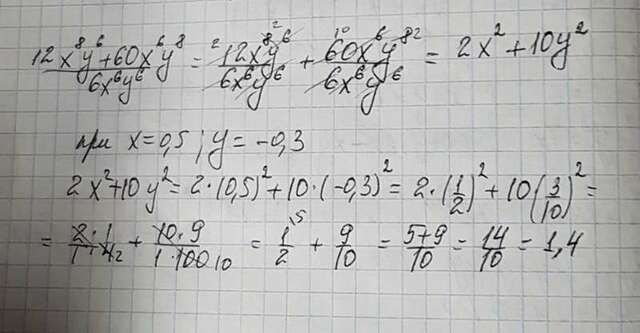 (12x⁸y⁶+60x⁶y⁸)/(6x⁶y⁶) = (12x⁸y⁶)/(6x⁶y⁶) + (60x⁶y⁸)/(6x⁶y⁶) = 2x²+10y²
при x=0,5; y=-0,3
2x²+10y²=2·(0,5)²+10·(-0,3)²=2·(1/2)²+10(3/10)²=
= (2·1)/(1·4) + (10·9)/(1·100) = 1/2 + 9/10 = (5+9)/10 = 14/10 = 1,4